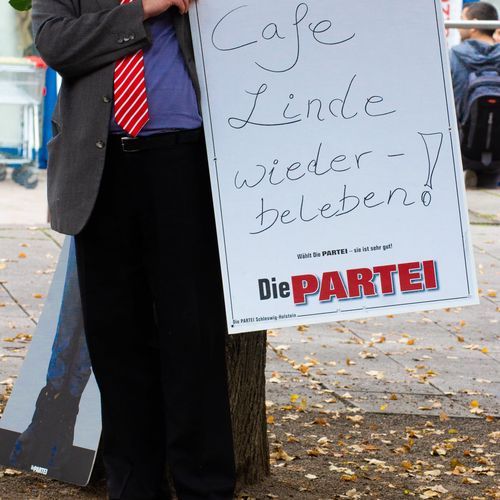 Cafe
Linde
wieder-
beleben!
Wählt Die PARTEI – sie ist sehr gut!
Die PARTEI
Die PARTEI Schleswig-Holstein
Die PARTEI